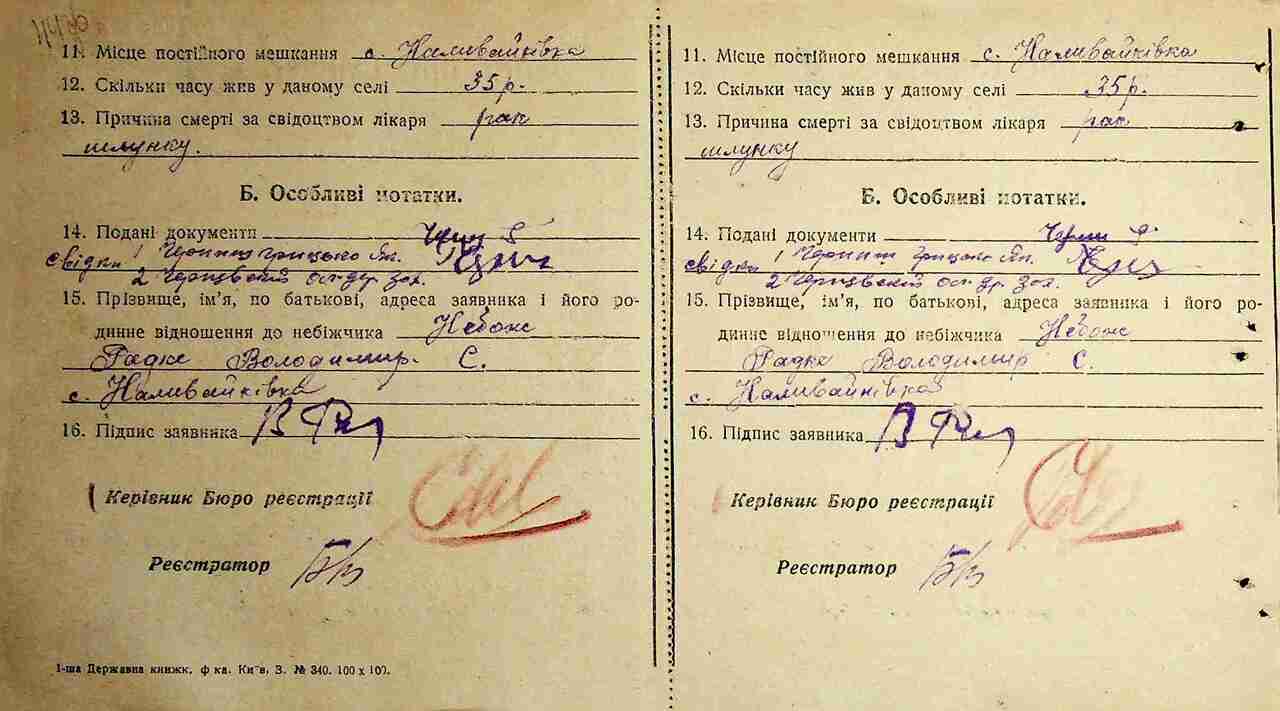 11. Місце постійного мешкання с. Наливайківка
12. Скільки часу жив у даному селі 35 р.
13. Причина смерті за свідоцтвом лікаря рак
шлунку.
Б. Особливі нотатки.
14. Подані документи
свідки 1 Грицько Як.
2
15. Прізвище, ім'я, по батькові, адреса заявника і його ро-
динне відношення до небіжчика Небож
Радке Володимир. С.
с. Наливайківка
16. Підпис заявника
Керівник Бюро реєстрації
Реєстратор
1-ша Державна книжк. ф-ка. Київ, З. № 340. 100 x 100.
11. Місце постійного мешкання с. Наливайківка
12. Скільки часу жив у даному селі 35 р.
13. Причина смерті за свідоцтвом лікаря рак
шлунку
Б. Особливі нотатки.
14. Подані документи
свідки 1 Грицько Як.
2
15. Прізвище, ім'я, по батькові, адреса заявника і його ро-
динне відношення до небіжчика Небож
Радке Володимир С.
с. Наливайківка
16. Підпис заявника
Керівник Бюро реєстрації
Реєстратор